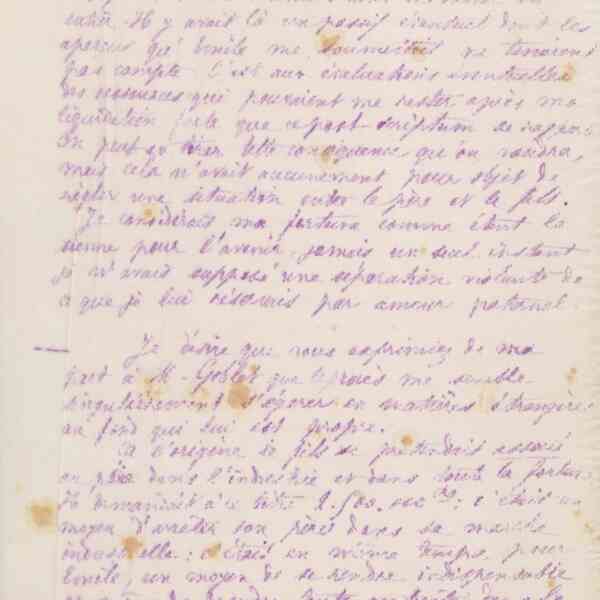 Il y avait là un passif éventuel dont les
aperçus qu'Emile me soumettait ne tenaient
pas compte. C'est aux évaluations éventuelles
des ressources qui pourraient me rester après ma
liquidation faite que ce post scriptum se rapporte
On peut en tirer telle conséquence qu'on voudra,
mais cela n'avait aucunement pour objet de
régler une situation entre le père et le fils.
Je considérais ma fortune comme étant la
sienne pour l'avenir, jamais un seul instant
je n'avais supposé une séparation violente de
ce que je lui réservais par amour paternel.
Je désire que vous exprimiez de ma
part à M. Goblet que le procès me semble
singulièrement s'égarer en matières étrangères
au fond qui lui est propre.
A l'origine le fils se prétendait associé
au père dans l'industrie et dans toute la fortune
Il demandait à ce titre 2.500.000 frs : c'était un
moyen d'arrêter son père dans sa marche
industrielle : c'était en même temps pour
Emile, un moyen de se rendre indispensable